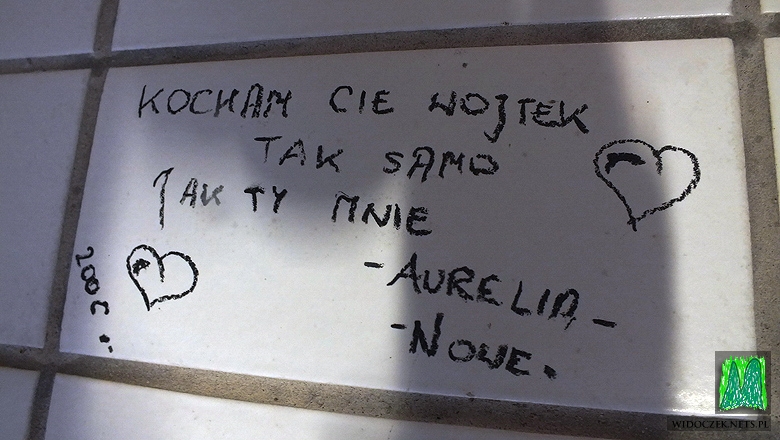 KOCHAM CIE WOJTEK
TAK SAMO
JAK TY MNIE
-AURELIA-
-NOWE.
WIDOCZEK.NETS.PL